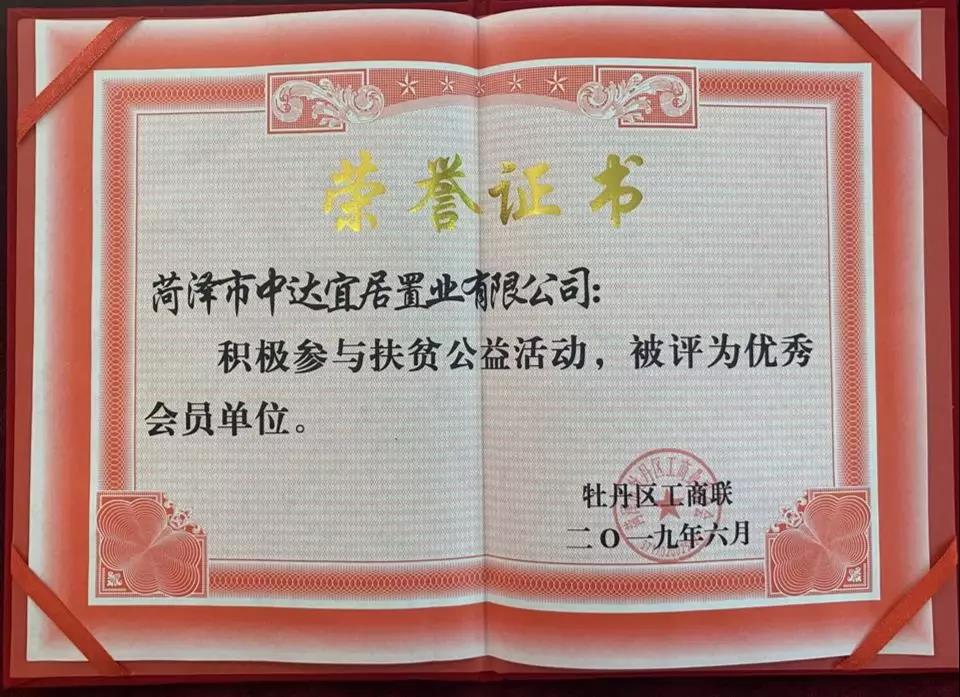 荣誉证书
菏泽市中达宜居置业有限公司:
积极参与扶贫公益活动，被评为优秀
会员单位。
牡丹区工商联
二O一九年六月